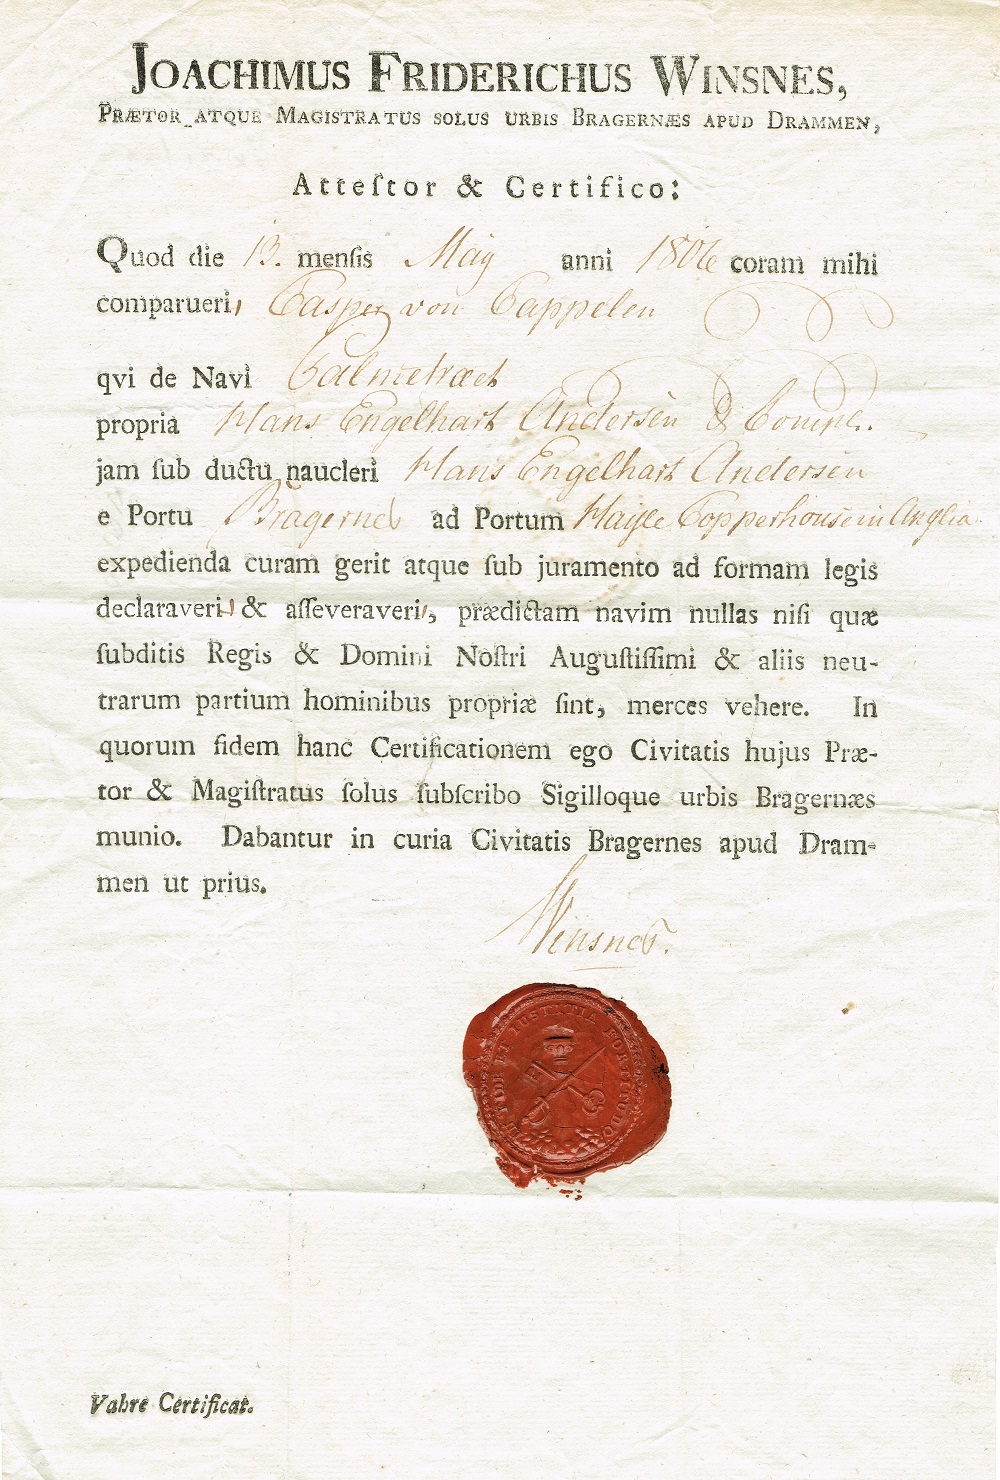 JOACHIMUS FRIDERICHUS WINSNES,
PRÆTOR ATQUE MAGISTRATUS SOLUS URBIS BRAGERNÆS APUD DRAMMEN,
Atteſtor & Certifico:
Quod die 13. menſis Maij anni 1806 coram mihi
comparuerit Casper von Cappelen
qvi de Navi
propria Hans Engelhart Andersen & Compe.
jam ſub ductu naucleri Hans Engelhart Andersen
e Portu Bragernes ad Portum Hayle Copperhouse in Anglia
expedienda curam gerit atque ſub juramento ad formam legis
declaraverit & aſſeveraverit, prædictam navim nullas niſi quæ
ſubditis Regis & Domini Noſtri Auguſtiſſimi & aliis neu-
trarum partium hominibus propriæ ſint, merces vehere. In
quorum fidem hanc Certificationem ego Civitatis hujus Præ-
tor & Magiſtratus ſolus ſubſcribo Sigilloque urbis Bragernæs
munio. Dabantur in curia Civitatis Bragernes apud Dram-
men ut prius.
Winsnes.
IN FIDE ET IUSTITIA FORTITUDO
Vahre Certificat.